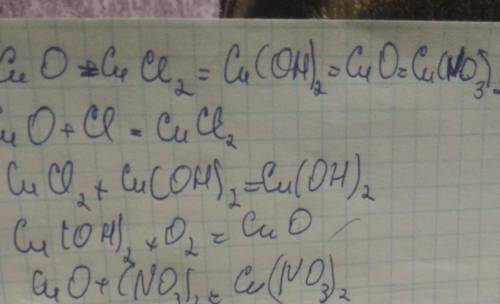 CuO = CuCl₂ = Cu(OH)₂ = CuO = Cu(NO₃)₂
CuO + Cl = CuCl₂
CuCl₂ + Cu(OH)₂ = Cu(OH)₂
Cu(OH)₂ + O₂ = CuO
CuO + (NO₃)₂ = Cu(NO₃)₂